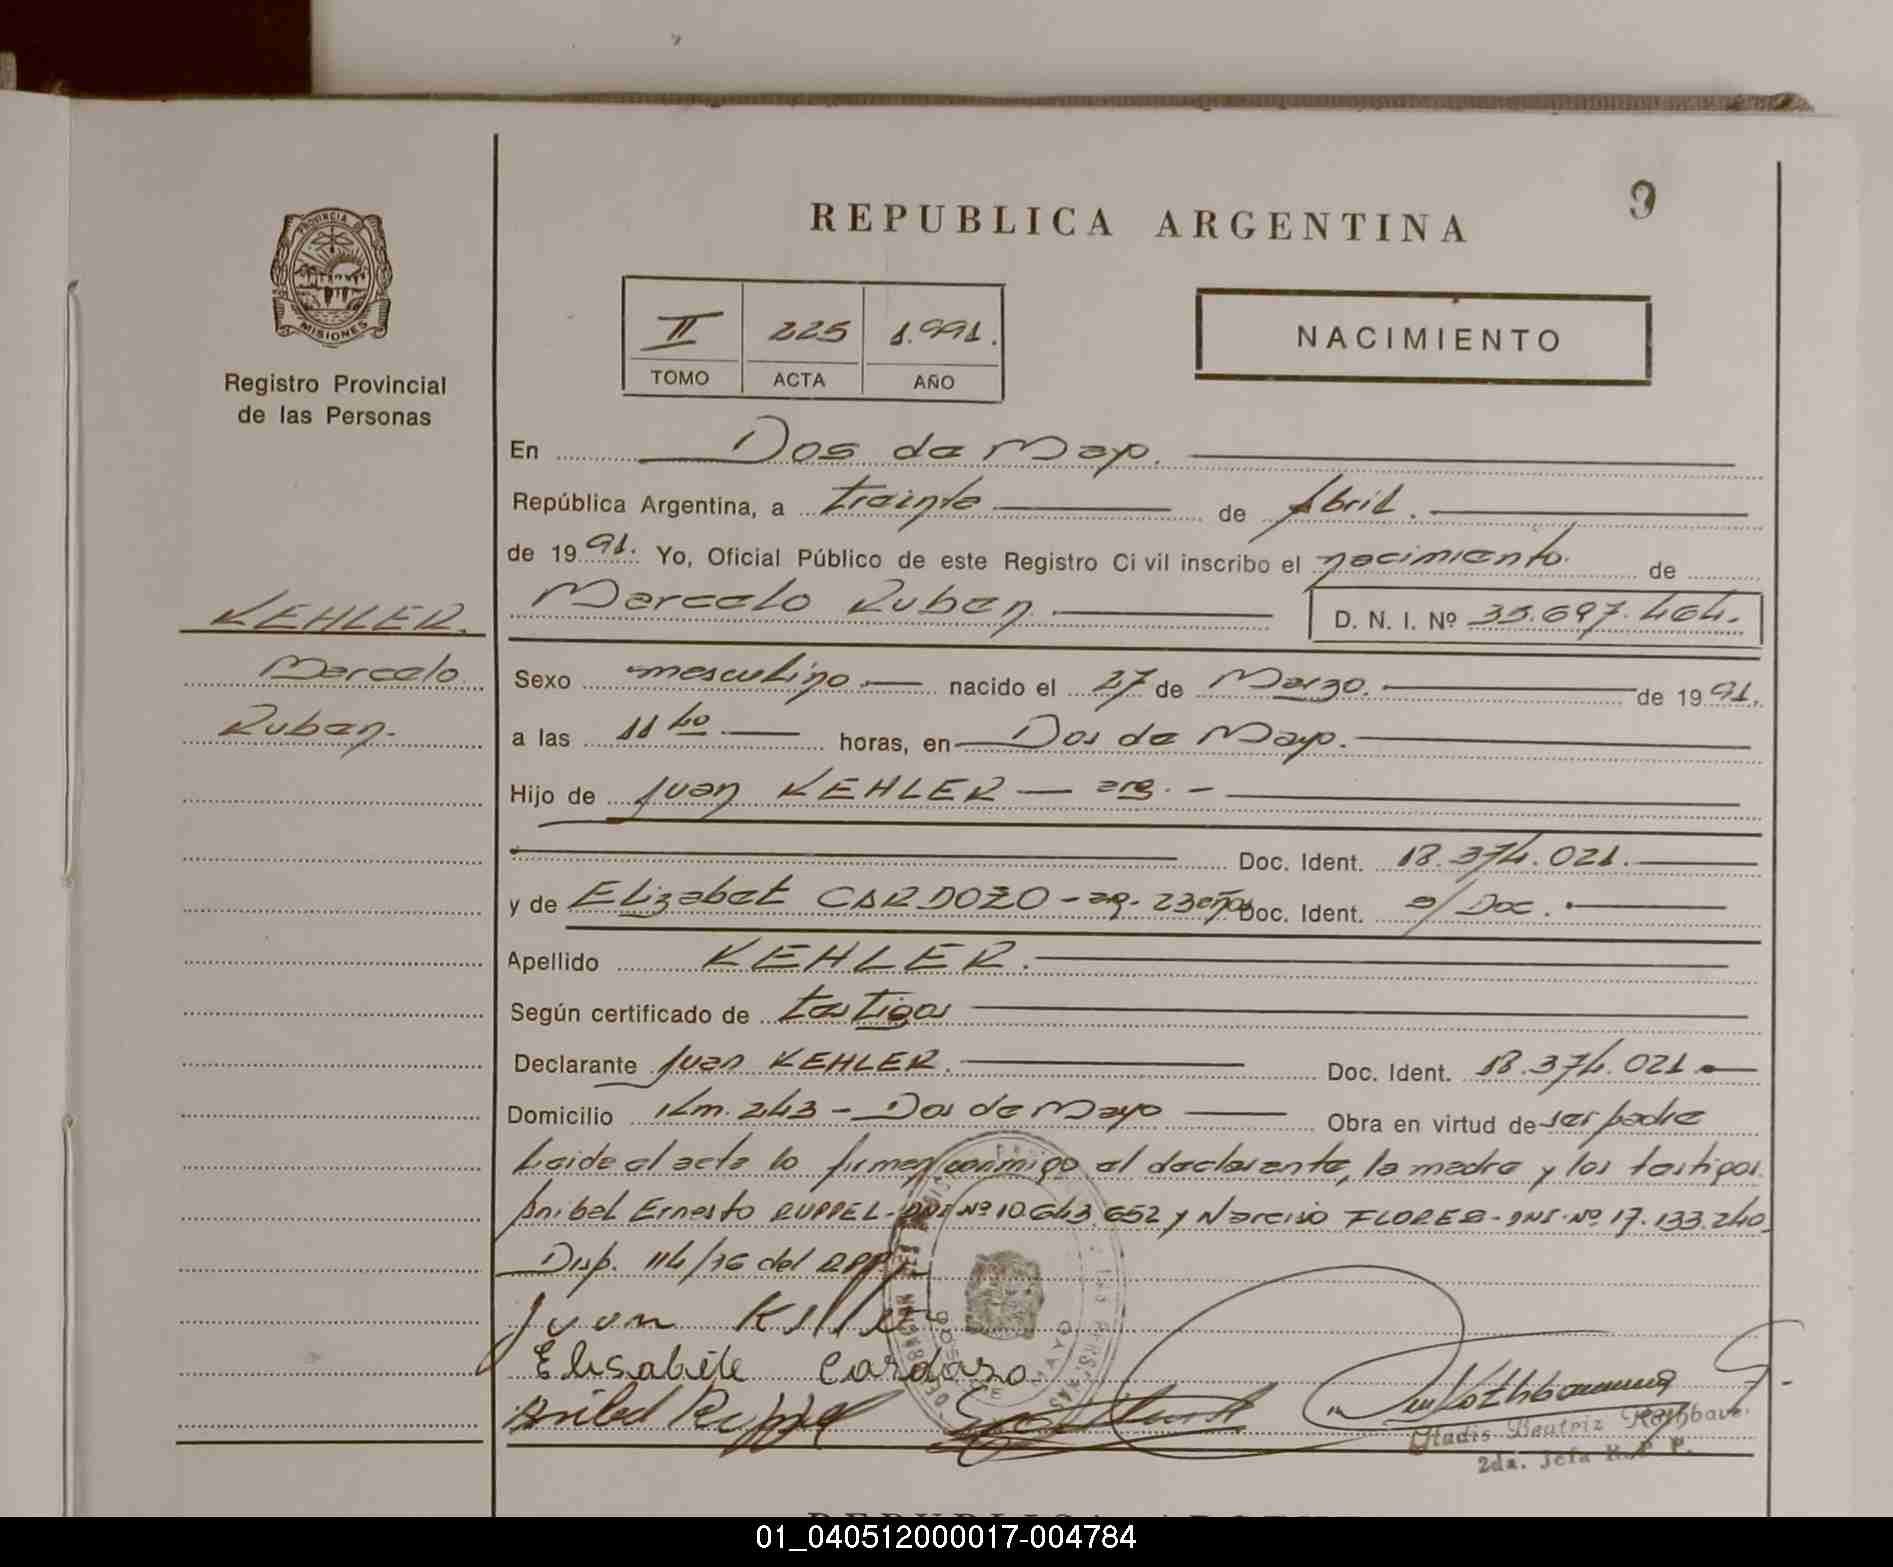 REPUBLICA ARGENTINA
9
PROVINCIA DE
MISIONES
Registro Provincial
de las Personas
II 225 1.991.
TOMO ACTA AÑO
NACIMIENTO
En Dos de Mayo.
República Argentina, a treinta de Abril.
de 1991. Yo, Oficial Público de este Registro Civil inscribo el nacimiento de
Marcelo Ruben D. N. I. Nº 35.697.464.
KEHLER.
Marcelo
Ruben.
Sexo masculino nacido el 27 de Marzo. de 1991.
a las 11 40 horas, en Dos de Mayo.
Hijo de Juan KEHLER — arg. -
Doc. Ident. 18.374.021.
y de Elizabet CARDOZO - arg. 23 años Doc. Ident. s/ Doc.
Apellido KEHLER.
Según certificado de testigos
Declarante Juan KEHLER. Doc. Ident. 18.374.021.
Domicilio Km. 243 - Dos de Mayo Obra en virtud de ser padre
Leida el acta lo firman conmigo el declarante, la madre y los testigos.
Anibal Ernesto RUPPEL - DNI Nº 10.643.652 y Narciso FLORES - DNI - Nº 17.133.240.
Disp. 114/76 del RPP
Juan
Elisabéte Cardozo
Anibal Ruppel
Gladis Beatriz
2da. Jefa R. P. P.
01_040512000017-004784